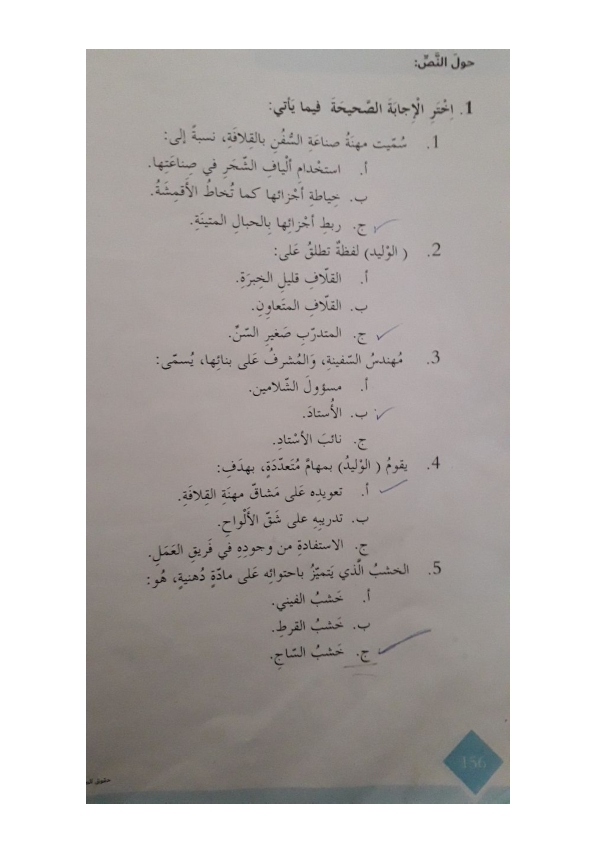 حولَ النَّصِّ:
1. اِخْتَرِ الْإِجابَةَ الصَّحيحَةَ فيما يَأتي:
1. سُمّيت مهنَةُ صناعَةِ السُّفُنِ بالقِلافَةِ، نسبةً إلى:
أ. استخْدامِ ألْيافِ الشّجَرِ في صِناعَتِها.
ب. خِياطةِ أجْزائها كما تُخاطُ الأَقمِشَةُ.
ج. ربطِ أجْزائِها بِالحبالِ المتينَةِ.
2. ( الوْليد) لفظةٌ تطلقُ عَلى:
أ. القلّافِ قليلِ الخِبرَةِ.
ب. القلّافِ المتَعاوِنِ.
ج. المتدرّبِ صَغيرِ السّنّ.
3. مُهندسُ السّفينةِ، وَالمُشرفُ عَلى بنائِها، يُسمّى:
أ. مسؤولَ الشّلامين.
ب. الأُستاذَ.
ج. نائبَ الأسْتاذِ.
4. يقومُ ( الوْليدُ) بمهامَّ مُتَعدّدَةٍ، بهدَفِ:
أ. تعويدِه عَلى مَشاقّ مهنَةِ القِلافَةِ.
ب. تدريبِهِ على شَقّ الأَلْواحِ.
ج. الاستفادةِ من وجودِهِ في فَريقِ العَمَلِ.
5. الخشبُ الّذي يَتميّزُ باحتوائِه عَلى مادّةٍ دُهنيةٍ، هُو:
أ. خَشبُ الفيني.
ب. خَشبُ القرطِ.
ج. خَشبُ السّاجِ.
156